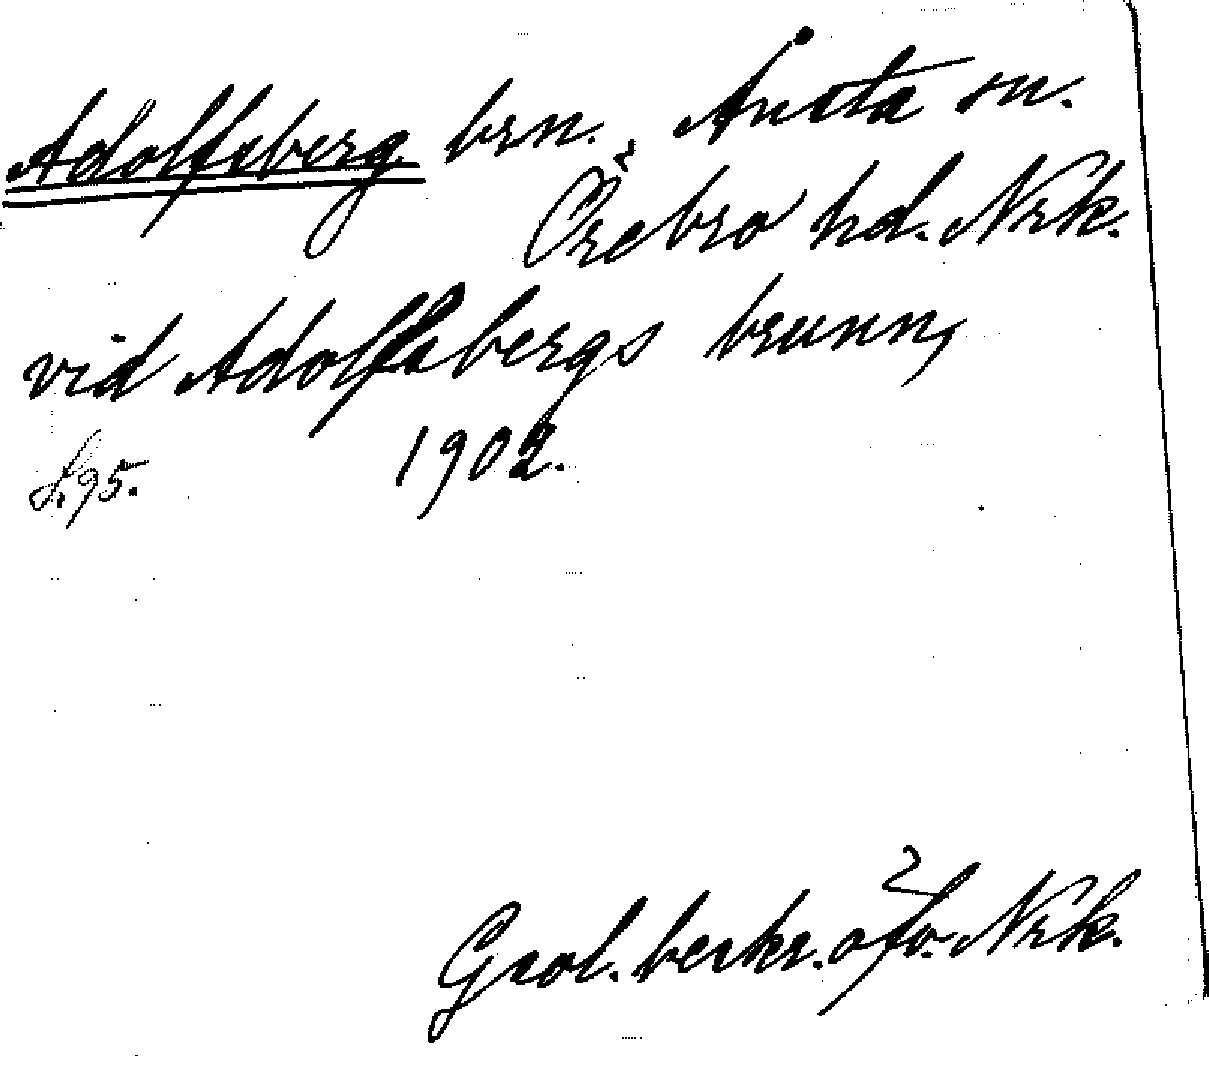 Adolfsberg brn. Ånsta sn.
Örebro hd. Nrk.
vid Adolfsbergs brunn,
S. 95. 1902.
Geol. beskr. öfv. Nrk.